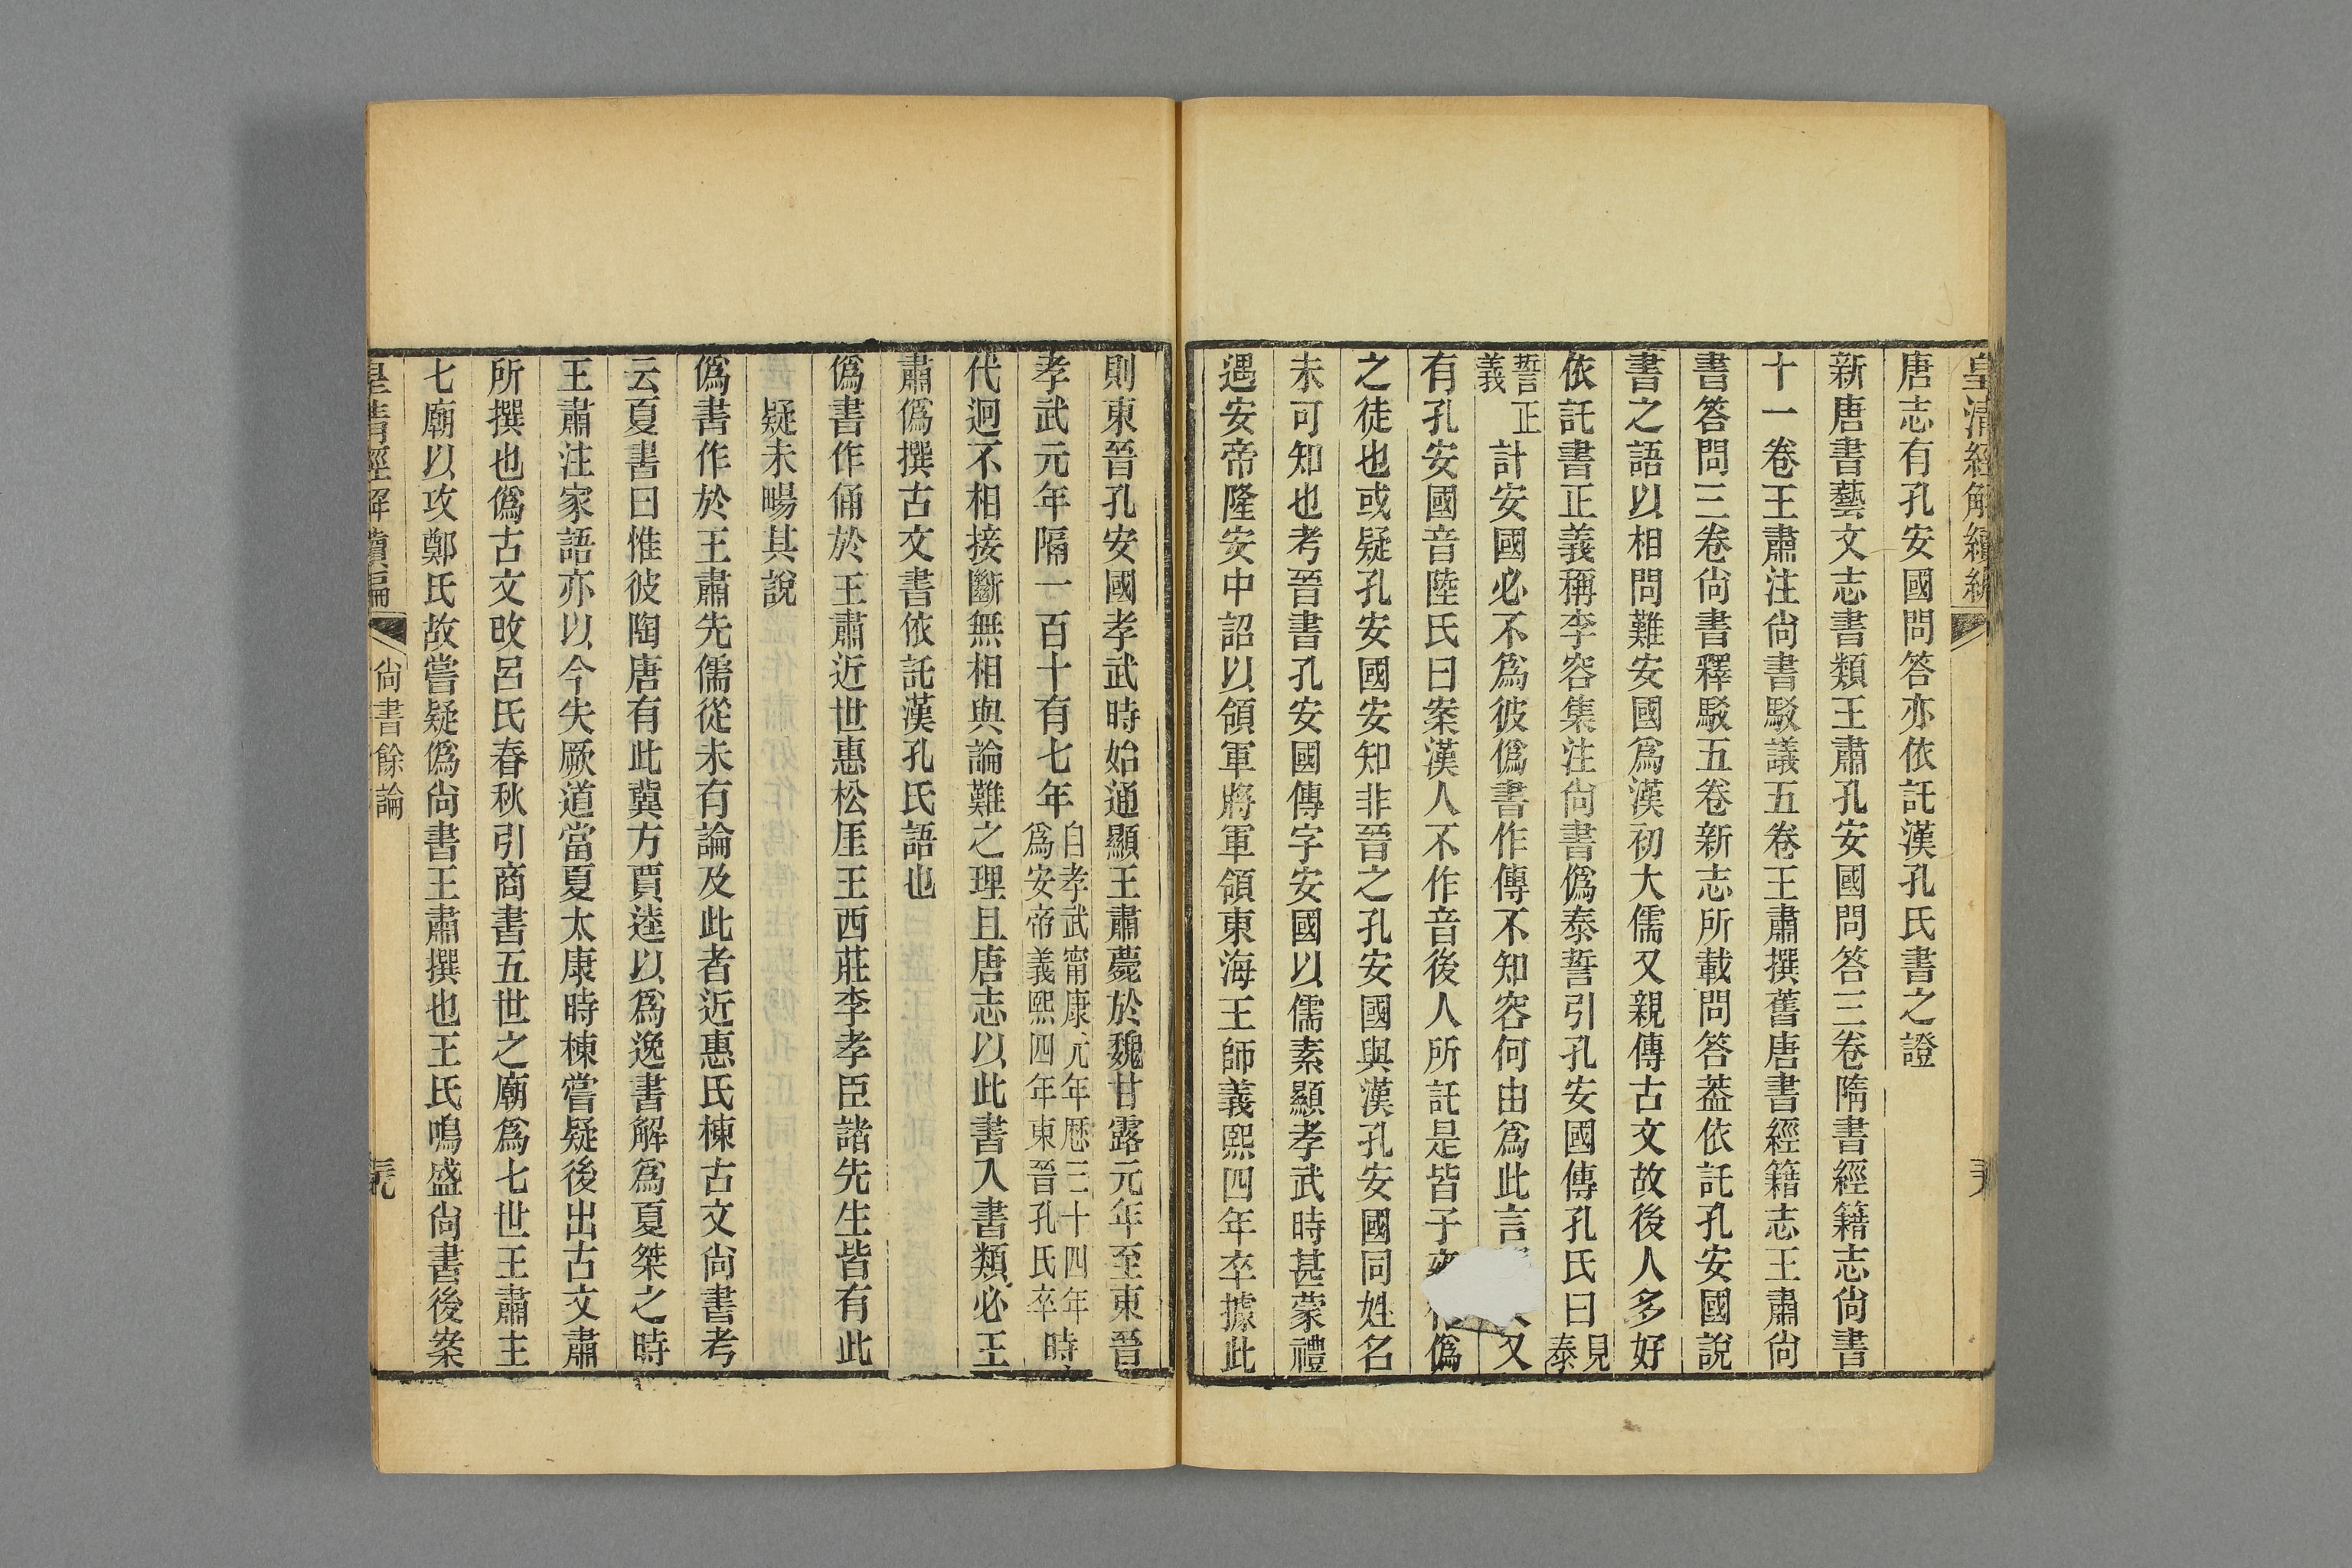 皇清經解續編
唐志有孔安國問答亦依託漢孔氏書之證
新唐書藝文志書類王肅孔安國問答三卷隋書經籍志尙書
十一卷王肅注尙書駁議五卷王肅撰舊唐書經籍志王肅尙
書答問三卷尙書釋駁五卷新志所載問答葢依託孔安國說
書之語以相問難安國爲漢初大儒又親傳古文故後人多好
依託書正義稱李容集注尙書僞泰誓引孔安國傳孔氏曰見泰
誓正義計安國必不爲彼僞書作傳不知容何由爲此言又
有孔安國音陸氏曰案漢人不作音後人所託是皆子僞
之徒也或疑孔安國安知非晉之孔安國與漢孔安國同姓名
未可知也考晉書孔安國傳字安國以儒素顯孝武時甚蒙禮
遇安帝隆安中詔以領軍將軍領東海王師義熙四年卒據此
則東晉孔安國孝武時始通顯王肅薨於魏甘露元年至東晉
孝武元年隔一百十有七年自孝武甯康元年歷三十四年爲安帝義熙四年東晉孔氏卒時
代迥不相接斷無相與論難之理且唐志以此書入書類必王
肅僞撰古文書依託漢孔氏語也
僞書作俑於王肅近世惠松厓王西莊李孝臣諸先生皆有此
疑未暢其說
僞書作於王肅先儒從未有論及此者近惠氏棟古文尙書考
云夏書曰惟彼陶唐有此冀方賈逵以爲逸書解爲夏桀之時
王肅注家語亦以今失厥道當夏太康時棟嘗疑後出古文肅
所撰也僞古文攺呂氏春秋引商書五世之廟爲七世王肅主
七廟以攻鄭氏故嘗疑僞尙書王肅撰也王氏鳴盛尙書後案
皇清經解續編
尙書餘論